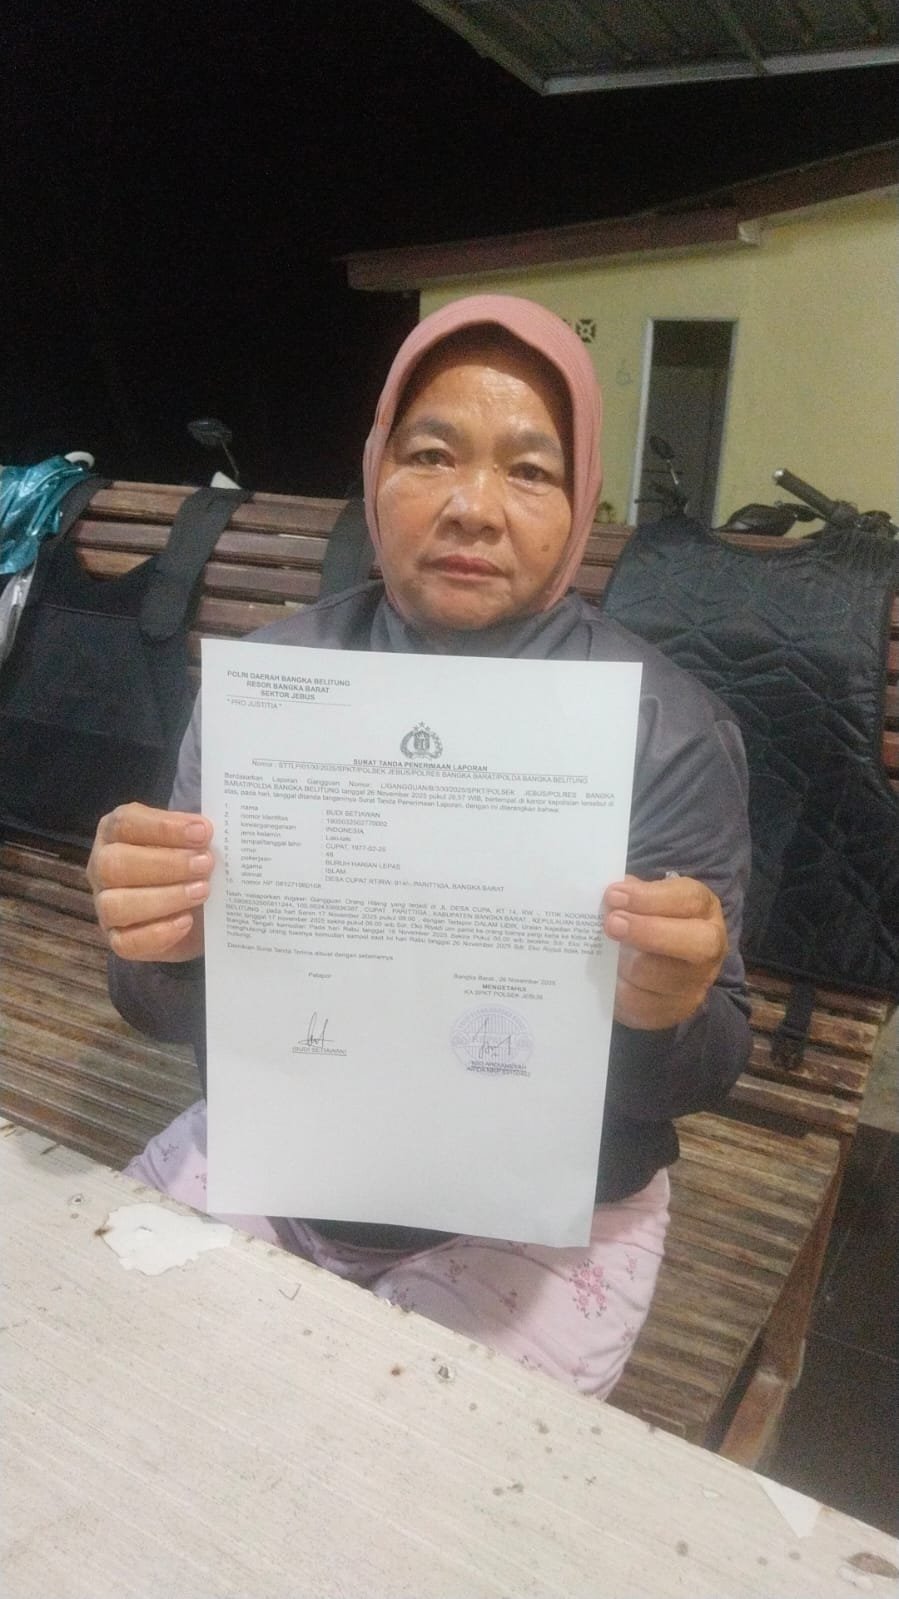 POLRI DAERAH BANGKA BELITUNG
RESOR BANGKA BARAT
SEKTOR JEBUS
" PRO JUSTITIA "
SURAT TANDA PENERIMAAN LAPORAN
Nomor : STTLP/01/XI/2025/SPKT/POLSEK JEBUS/POLRES BANGKA BARAT/POLDA BANGKA BELITUNG
Berdasarkan Laporan Gangguan Nomor: POLSEK JEBUS/POLRES BANGKA
BARAT/POLDA BANGKA BELITUNG tanggal 26 November 2025 pukul WIB, bertempat di kantor kepolisian tersebut di
atas, pada hari, tanggal ditanda tangannya Surat Tanda Penerimaan Laporan, dengan ini diterangkan bahwa:
1. nama : BUDI SETIAWAN
2. nomor identitas :
3. kewarganegaraan : INDONESIA
4. jenis kelamin : Laki-laki
5. tempat/tanggal lahir : CUPAT,
6. umur : 48
7. pekerjaan : BURUH HARIAN LEPAS
8. agama : ISLAM
9. alamat : DESA CUPAT PARITTIGA, BANGKA BARAT
10. nomor HP
Telah melaporkan dugaan Gangguan Orang Hilang yang terjadi di JL DESA CUPA, RT 14, RW -, TITIK KOORDINAT
CUPAT, PARITTIGA, KABUPATEN BANGKA BARAT, KEPULAUAN BANGKA
BELITUNG, pada hari Senin 17 November 2025 pukul 09.00 , dengan Terlapor DALAM LIDIK, Uraian Kejadian Pada hari
senin tanggal 17 november 2025 sekira pukul wib Sdr. Eko Riyadi
Bangka Tengah kemudian Pada hari Rabu tanggal November 2025 Sekira Pukul wib
kemudian sampai saat ini hari Rabu tanggal 26 November 2025 Sdr. Eko Riyadi tidak bisa di
hubungi.
Demikian Surat Tanda Terima dibuat dengan sebenarnya.
Pelapor
(BUDI SETIAWAN)
Bangka Barat, 26 November 2025
MENGETAHUI
KA SPKT POLSEK JEBUS